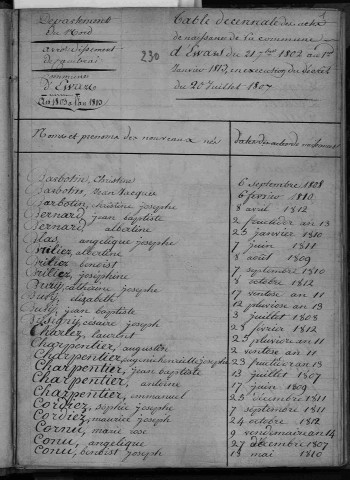 Département
du Nord
arrondissement
de Cambrai
Commune
d'Ewars
De 1803 à l'an 1813
230
Table décennale des actes
de naissance de la commune
d'Ewars du 21 7bre 1802 au 1er
Janvier 1813, en exécution du décret
du 20 Juillet 1807
Noms et prenoms des nouveaux nés Dates des actes de naissance
Barbotin, Christine 6 septembre 1808
Barbotin, Jean Jacques 6 fevrier 1810
Barbotin, christine josephe 8 avril 1812
Bernard, jean baptiste 2 fructidor an 13
Bernard, albertine 23 janvier 1810
Blas, angelique josephe 7 juin 1811
albertine 8 août 1809
benoist 7 septembre 1810
joséphine 8 octobre 1812
josephe 17 ventose an 11
elizabeth 12 pluviose an 13
jean baptiste 3 juillet 1808
césaire joseph 28 février 1812
Charlez, laurent 23 pluviose an 11
Charpentier, augustin 2 ventose an 11
Charpentier, josephe 23 fructidor an 13
Charpentier, jean baptiste 13 juillet 1807
Charpentier, antoine 17 juin 1809
Charpentier, emmanuel 23 décembre 1811
Cordiez, sophie josephe 7 septembre 1811
Cordiez, maurice joseph 24 octobre 1812
Cornu, marie rose 9 vendemiaire an 14
Conu, angelique 27 décembre 1807
Conu, benoist joseph 18 mai 1810